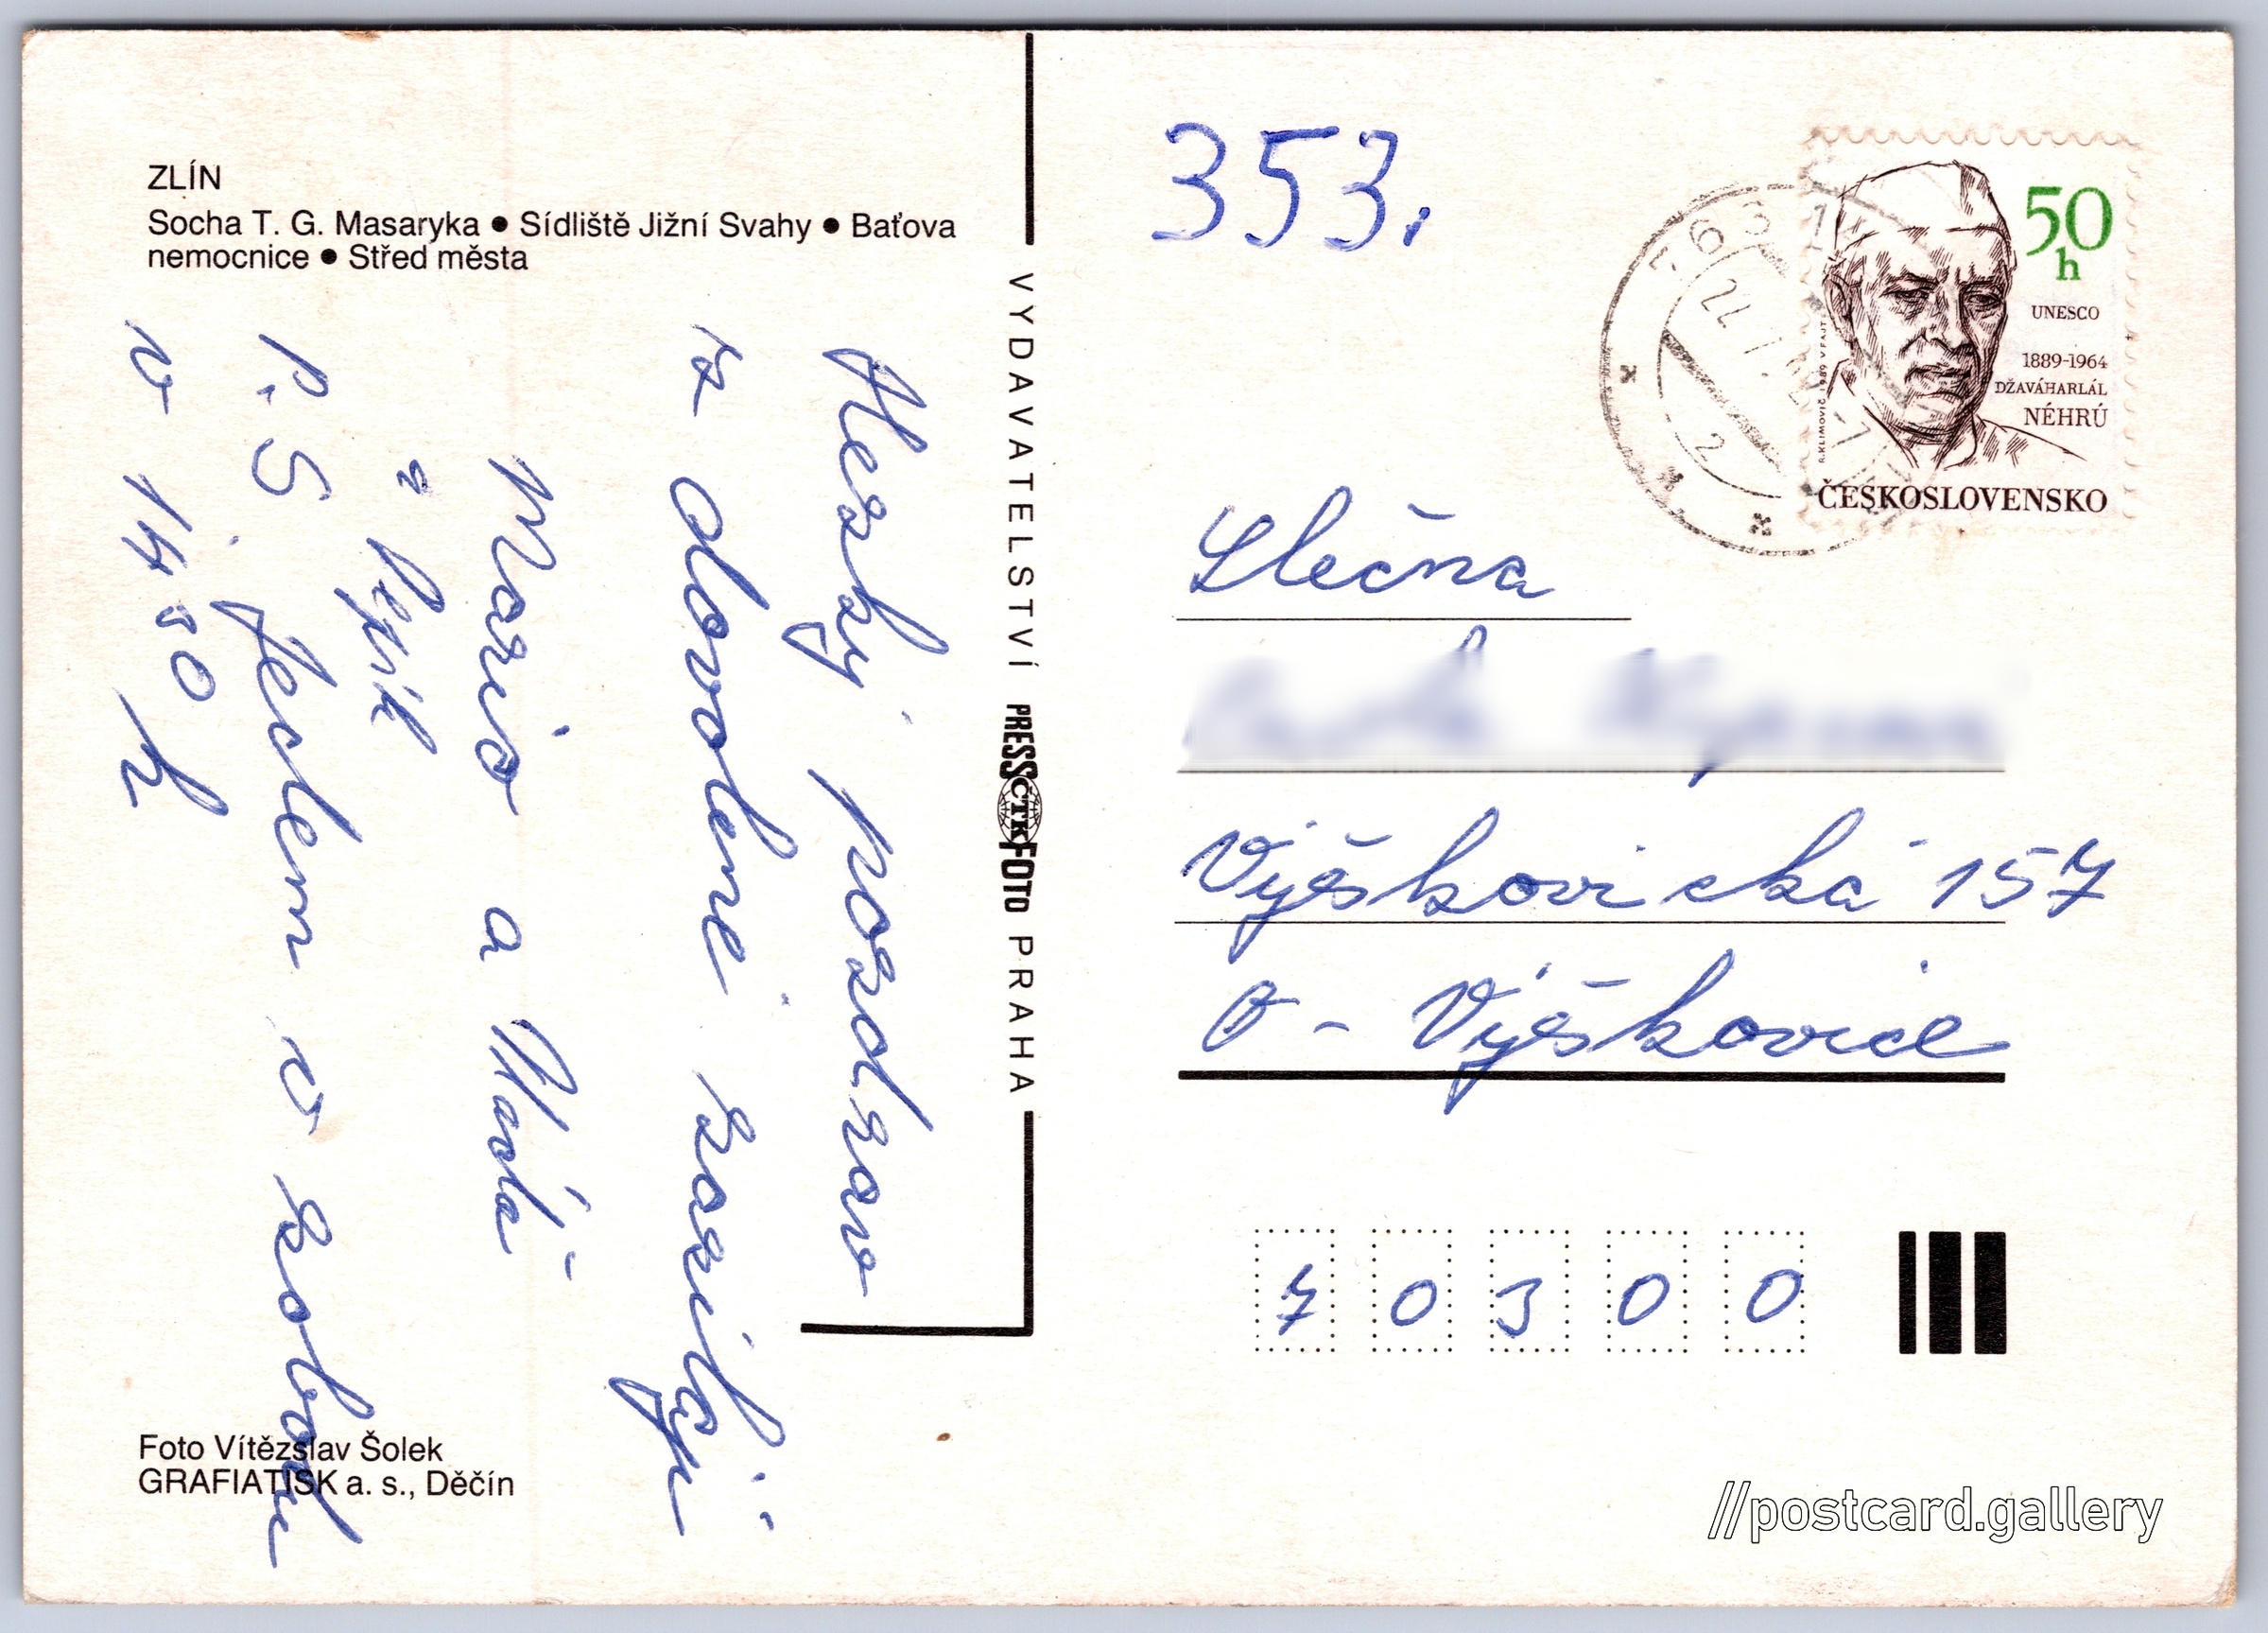 ZLÍN
Socha T. G. Masaryka ● Sídliště Jižní Svahy ● Baťova
nemocnice ● Střed města
Hezký pozdrav
z dovolené zasílají
Mario a Vláďa
a Pepík
P.S. Jedem v sobotu
v 14.50 h
Foto Vítězslav Šolek
GRAFIATISK a. s., Děčín
VYDAVATELSTVÍ PRESSČTKFOTO PRAHA
353.
50
h
UNESCO
1889-1964
DŽAVÁHARLÁL
NÉHRÚ
ČESKOSLOVENSKO
Slečna
Výškovická 157
O - Výškovice
70300
//postcard.gallery